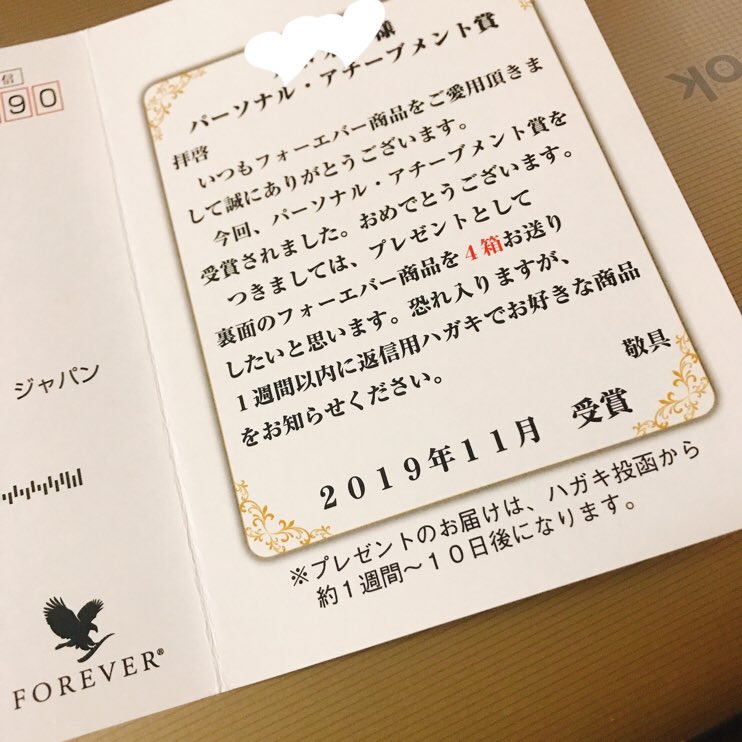 信
90
ジャパン
FOREVER®
様
パーソナル・アチーブメント賞
拝啓
いつもフォーエバー商品をご愛用頂きま
して誠にありがとうございます。
今回、パーソナル・アチーブメント賞を
受賞されました。おめでとうございます。
つきましては、プレゼントとして
裏面のフォーエバー商品を4箱お送り
したいと思います。恐れ入りますが、
1週間以内に返信用ハガキでお好きな商品
をお知らせください。
敬具
2019年11月 受賞
※プレゼントのお届けは、ハガキ投函から
約1週間〜10日後になります。
ok